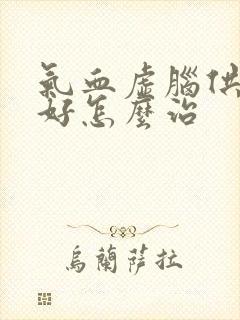 氣血虛腦供
好怎麼治
烏蘭薩拉